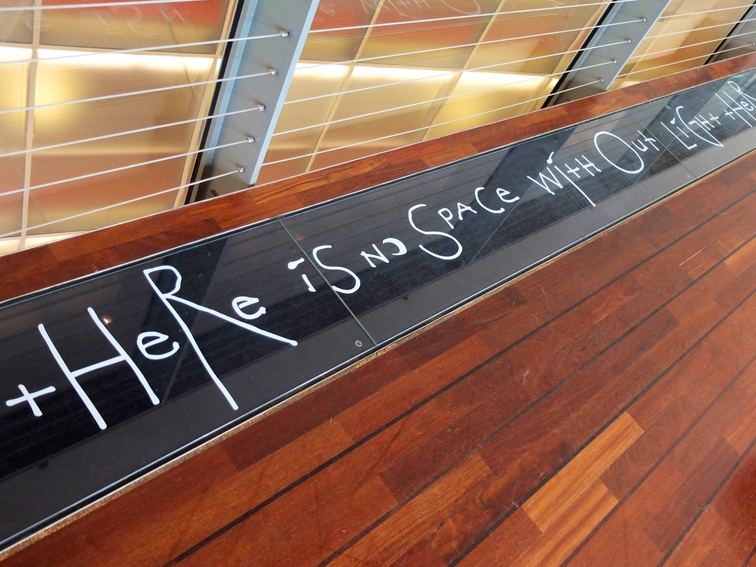 +HeRe iS NO SPACe WitHOut LiGHt +HeR